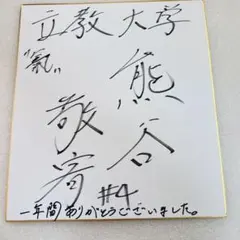 立教大学
"氣"
熊谷
敬宥
#4
一年間ありがとうございました。